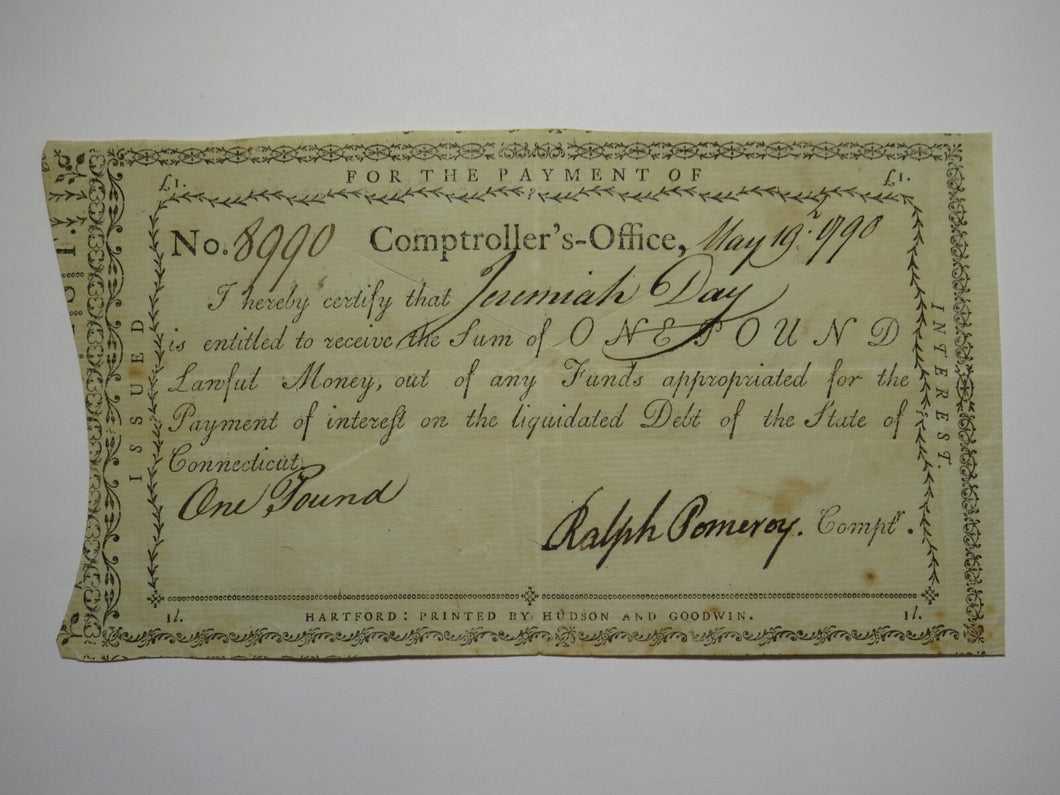 FOR THE PAYMENT OF
£1. £1.
No. 8990 Comptroller's-Office, May 19.th 1790
I hereby certify that Jeremiah Day
is entitled to receive the Sum of ONE POUND
Lawful Money, out of any Funds appropriated for the
Payment of intereſt on the liquidated Debt of the State of
Connecticut.
One Pound
Ralph Pomeroy. Comptr.
1l. HARTFORD: PRINTED BY HUDSON AND GOODWIN. 1l.
ISSUED
INTEREST.